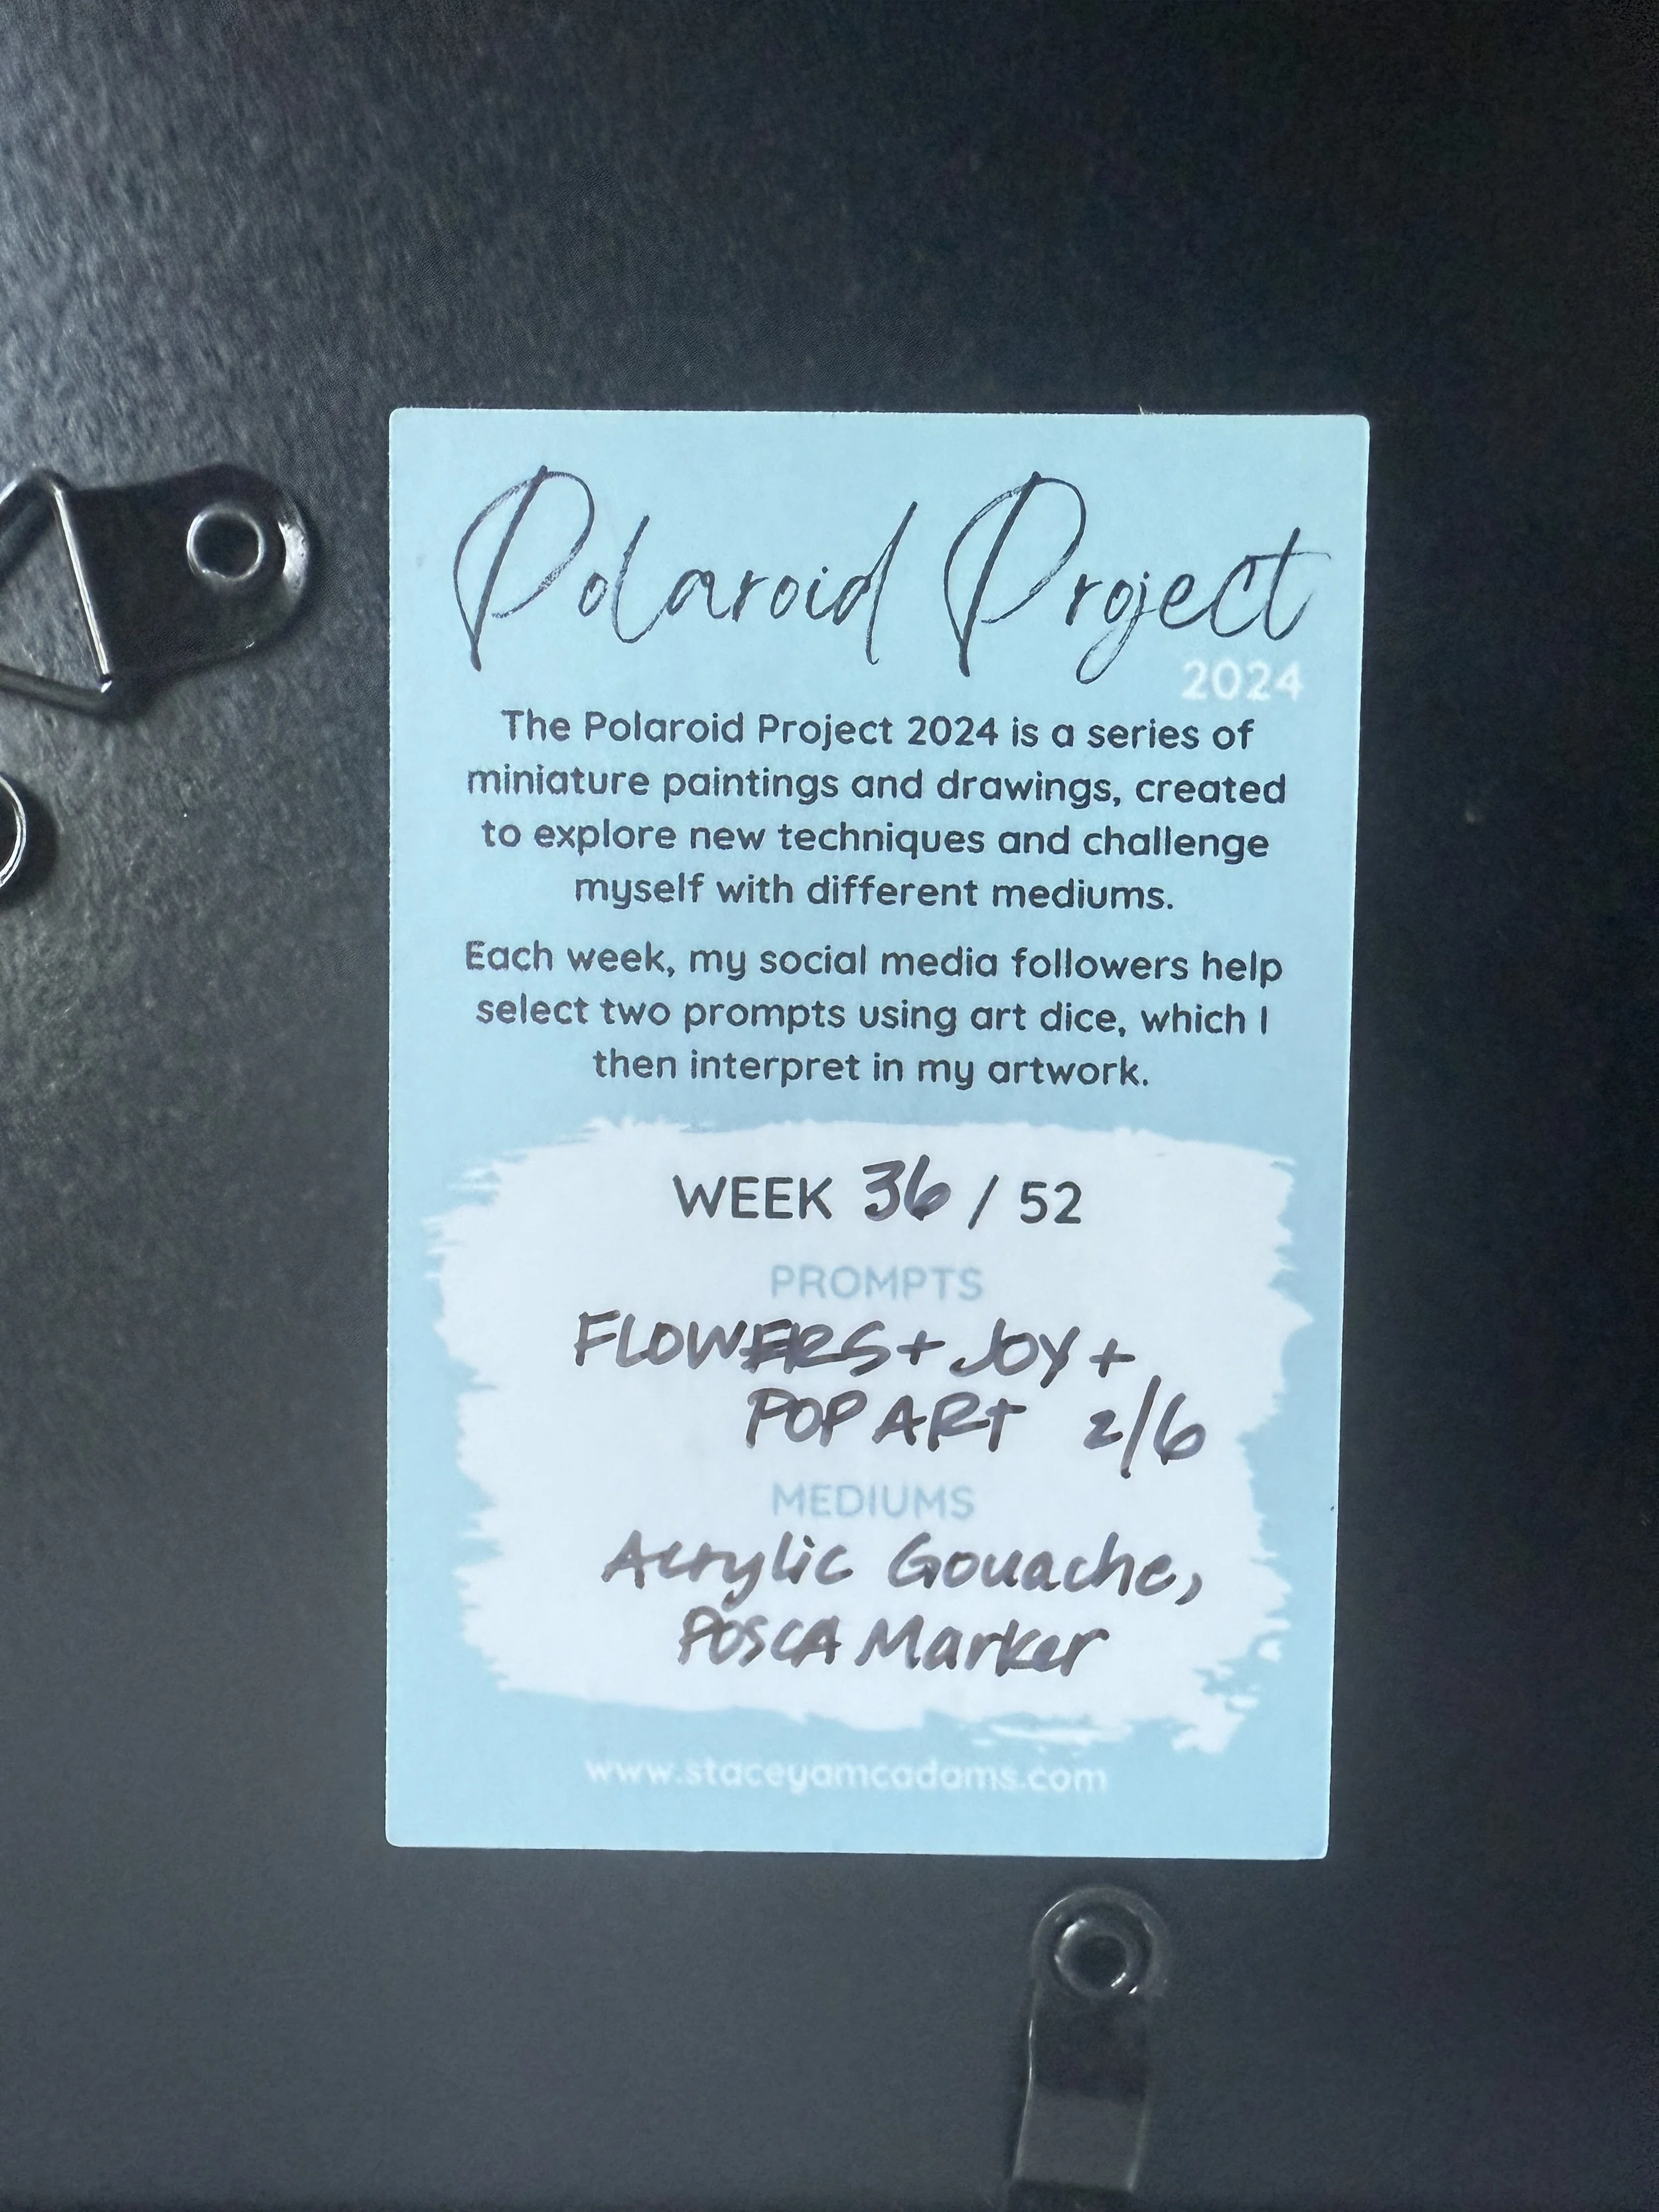 Polaroid Project
2024
The Polaroid Project 2024 is a series of
miniature paintings and drawings, created
to explore new techniques and challenge
myself with different mediums.
Each week, my social media followers help
select two prompts using art dice, which I
then interpret in my artwork.
WEEK 36 / 52
PROMPTS
FLOWERS + JOY +
POP ART 2/6
MEDIUMS
Acrylic Gouache,
POSCA Marker
www.staceyamcadams.com